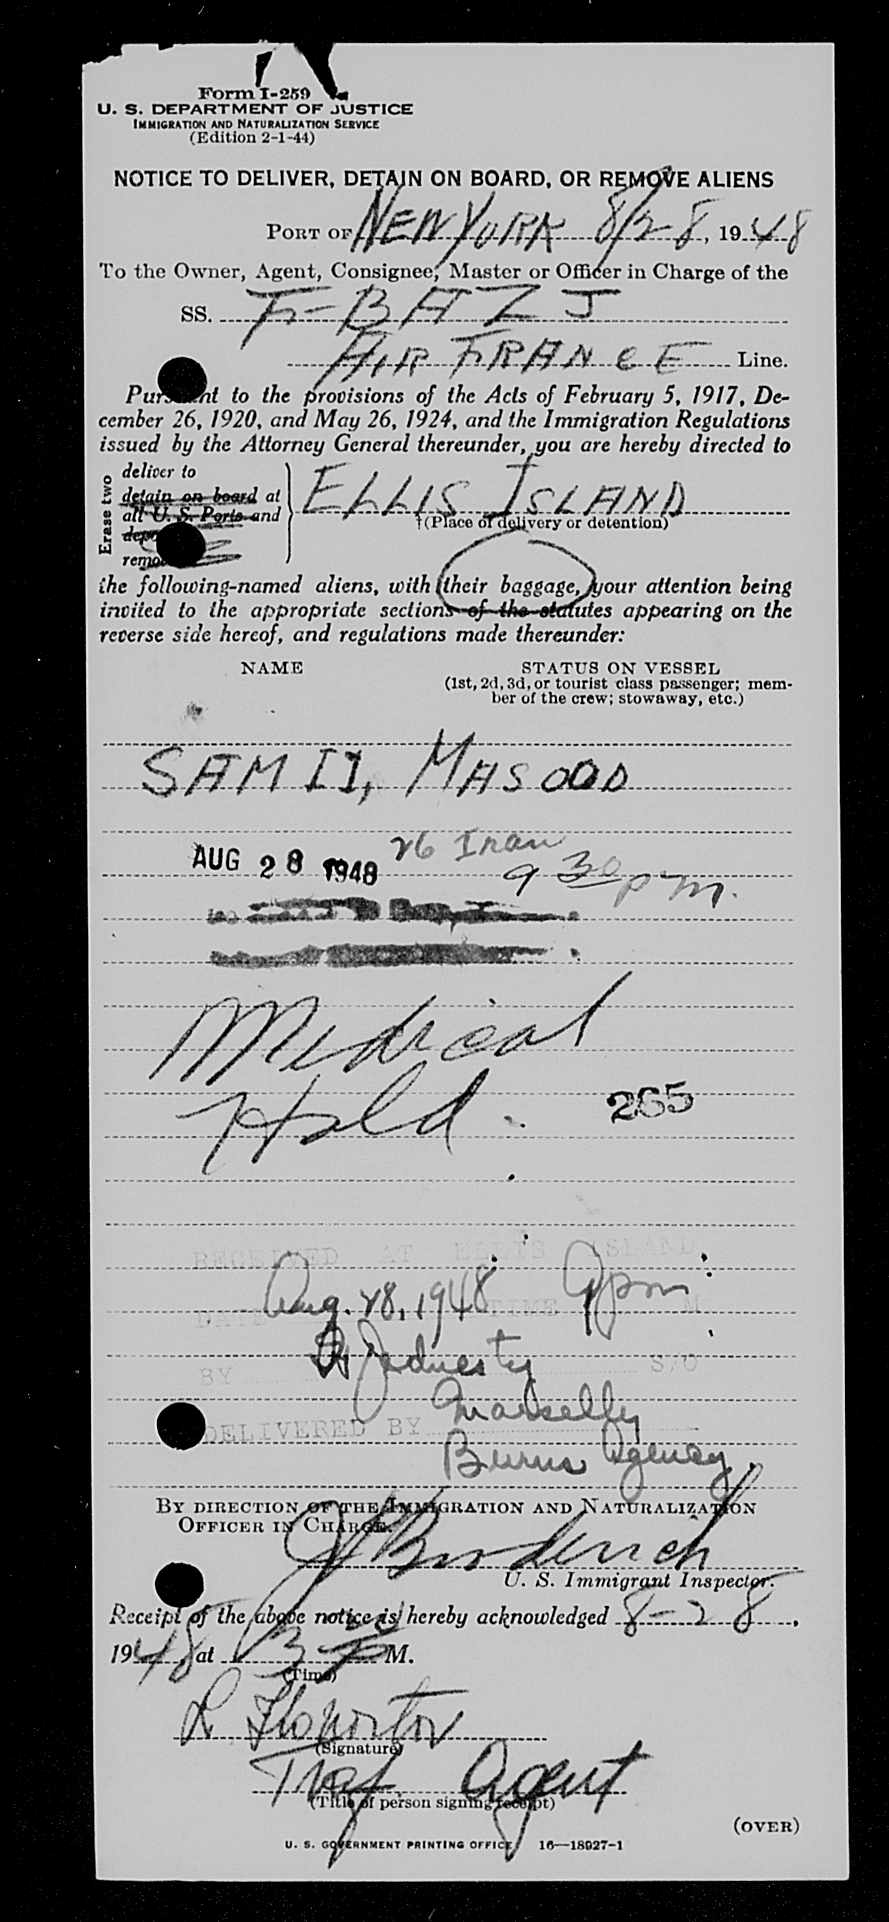 Form I-259
U. S. DEPARTMENT OF JUSTICE
IMMIGRATION AND NATURALIZATION SERVICE
(Edition 2-1-44)
NOTICE TO DELIVER, DETAIN ON BOARD, OR REMOVE ALIENS
PORT OF NEW YORK 8/28, 1948
To the Owner, Agent, Consignee, Master or Officer in Charge of the
SS. F-BAZJ
AIR FRANCE Line.
Pursuant to the provisions of the Acts of February 5, 1917, De-
cember 26, 1920, and May 26, 1924, and the Immigration Regulations
issued by the Attorney General thereunder, you are hereby directed to
Erase two
deliver to
detain on board at
all U. S. Ports and
remove
ELLIS ISLAND
†(Place of delivery or detention)
the following-named aliens, with their baggage, your attention being
invited to the appropriate sections of the statutes appearing on the
reverse side hereof, and regulations made thereunder:
NAME STATUS ON VESSEL
(1st, 2d, 3d, or tourist class passenger; mem-
ber of the crew; stowaway, etc.)
SAMII, MASOOD
26 Iran
AUG 28 1948 9 30 pm.
Medical
Hold. 265
RECEIVED AT ELLIS ISLAND
Aug. 28, 1948 9pm
DATE TIME M
BY S/O
DELIVERED BY
Burns Agency
BY DIRECTION OF THE IMMIGRATION AND NATURALIZATION
OFFICER IN CHARGE.
U. S. Immigrant Inspector.
Receipt of the above notice is hereby acknowledged 8-28,
1948 at 3 P M.
(Time)
(Signature)
Traf. Agent
(Title of person signing receipt)
(OVER)
U. S. GOVERNMENT PRINTING OFFICE 16—18927-1